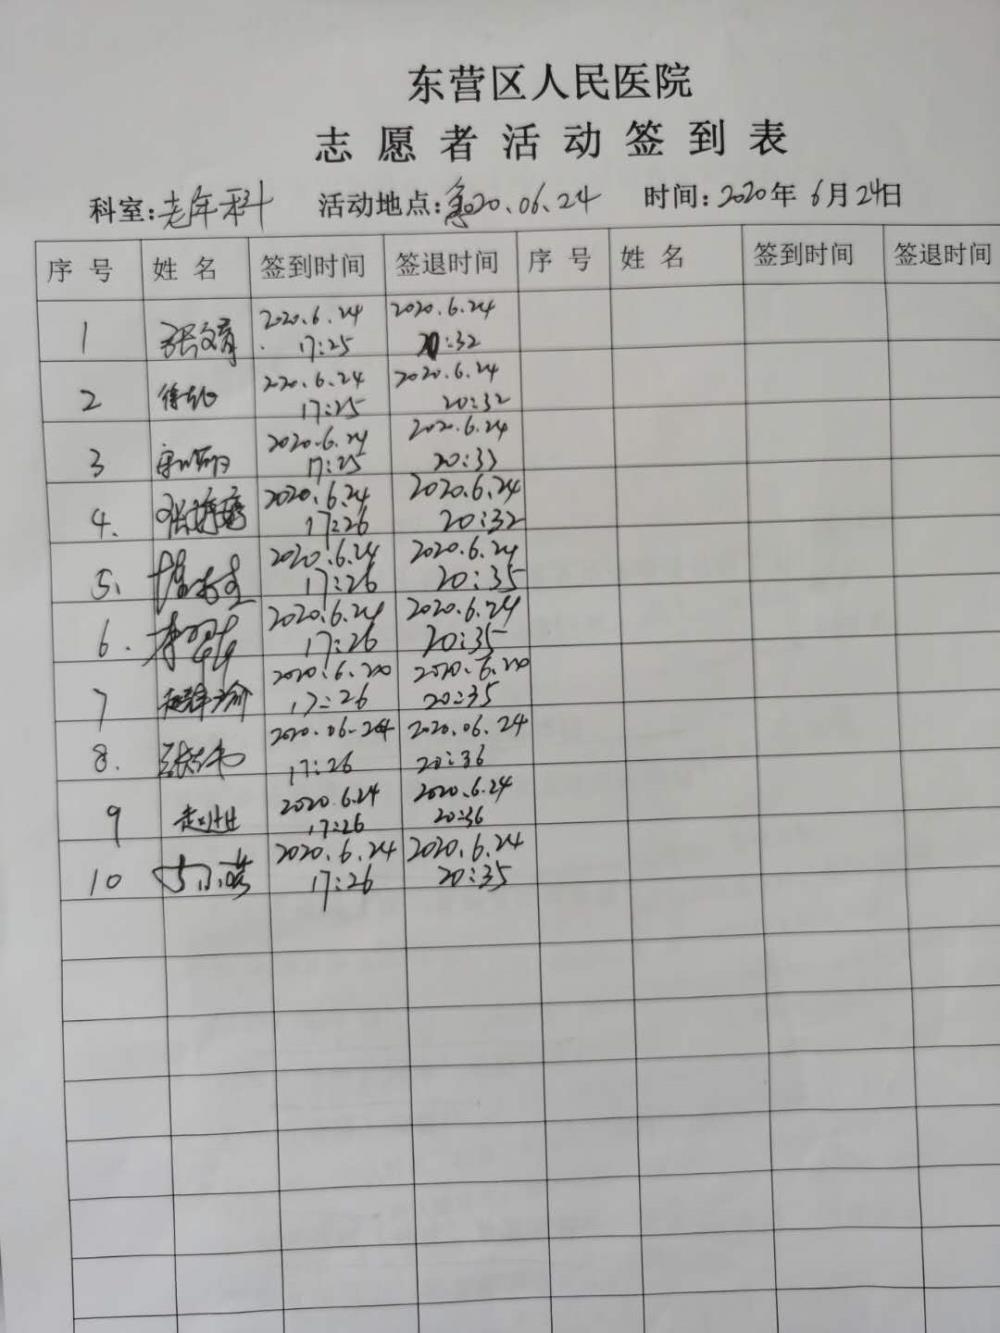 东营区人民医院
志愿者活动签到表
科室:老年科 活动地点:2020.06.24 时间:2020年6月24日
序号 姓名 签到时间 签退时间 序号 姓名 签到时间 签退时间
1 张文育 2020.6.24 17:25 2020.6.24 20:32
2 2020.6.24 17:25 2020.6.24 20:32
3 2020.6.24 17:25 2020.6.24 20:33
4. 2020.6.24 17:26 2020.6.24 20:32
5. 2020.6.24 17:26 2020.6.24 20:35
6. 2020.6.24 17:26 2020.6.24 20:35
7 2020.6.20 17:26 2020.6.20 20:35
8. 2020.06.24 17:26 2020.06.24 20:36
9 2020.6.24 17:26 2020.6.24 20:36
10 2020.6.24 17:26 2020.6.24 20:35